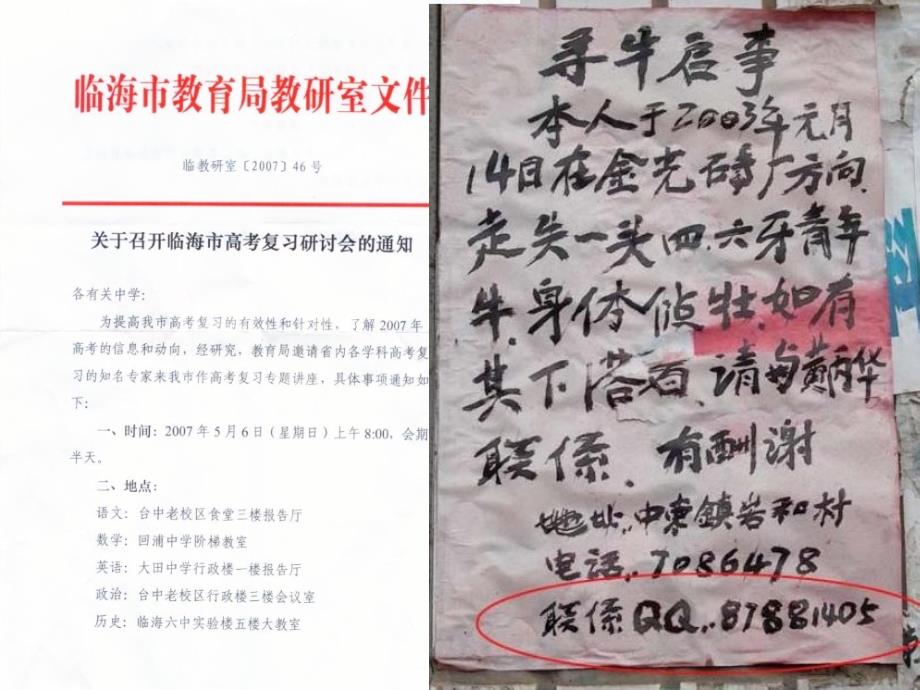 临海市教育局教研室文件
临教研室〔2007〕46号
关于召开临海市高考复习研讨会的通知
各有关中学：
为提高我市高考复习的有效性和针对性，了解 2007 年
高考的信息和动向，经研究，教育局邀请省内各学科高考复
习的知名专家来我市作高考复习专题讲座，具体事项通知如
下：
一、时间：2007 年 5 月 6 日（星期日）上午 8:00，会期
半天。
二、地点：
语文：台中老校区食堂三楼报告厅
数学：回浦中学阶梯教室
英语：大田中学行政楼一楼报告厅
政治：台中老校区行政楼三楼会议室
历史：临海六中实验楼五楼大教室
寻牛启事
本人于2003年元月
14日在金光砖厂方向,
走失一头四.六牙青年
牛,身体健壮,如有
其下落者,请与黄丙华
联係,有酬谢
地址:中東鎮岩和村
电话:7086478
联係QQ:87881405